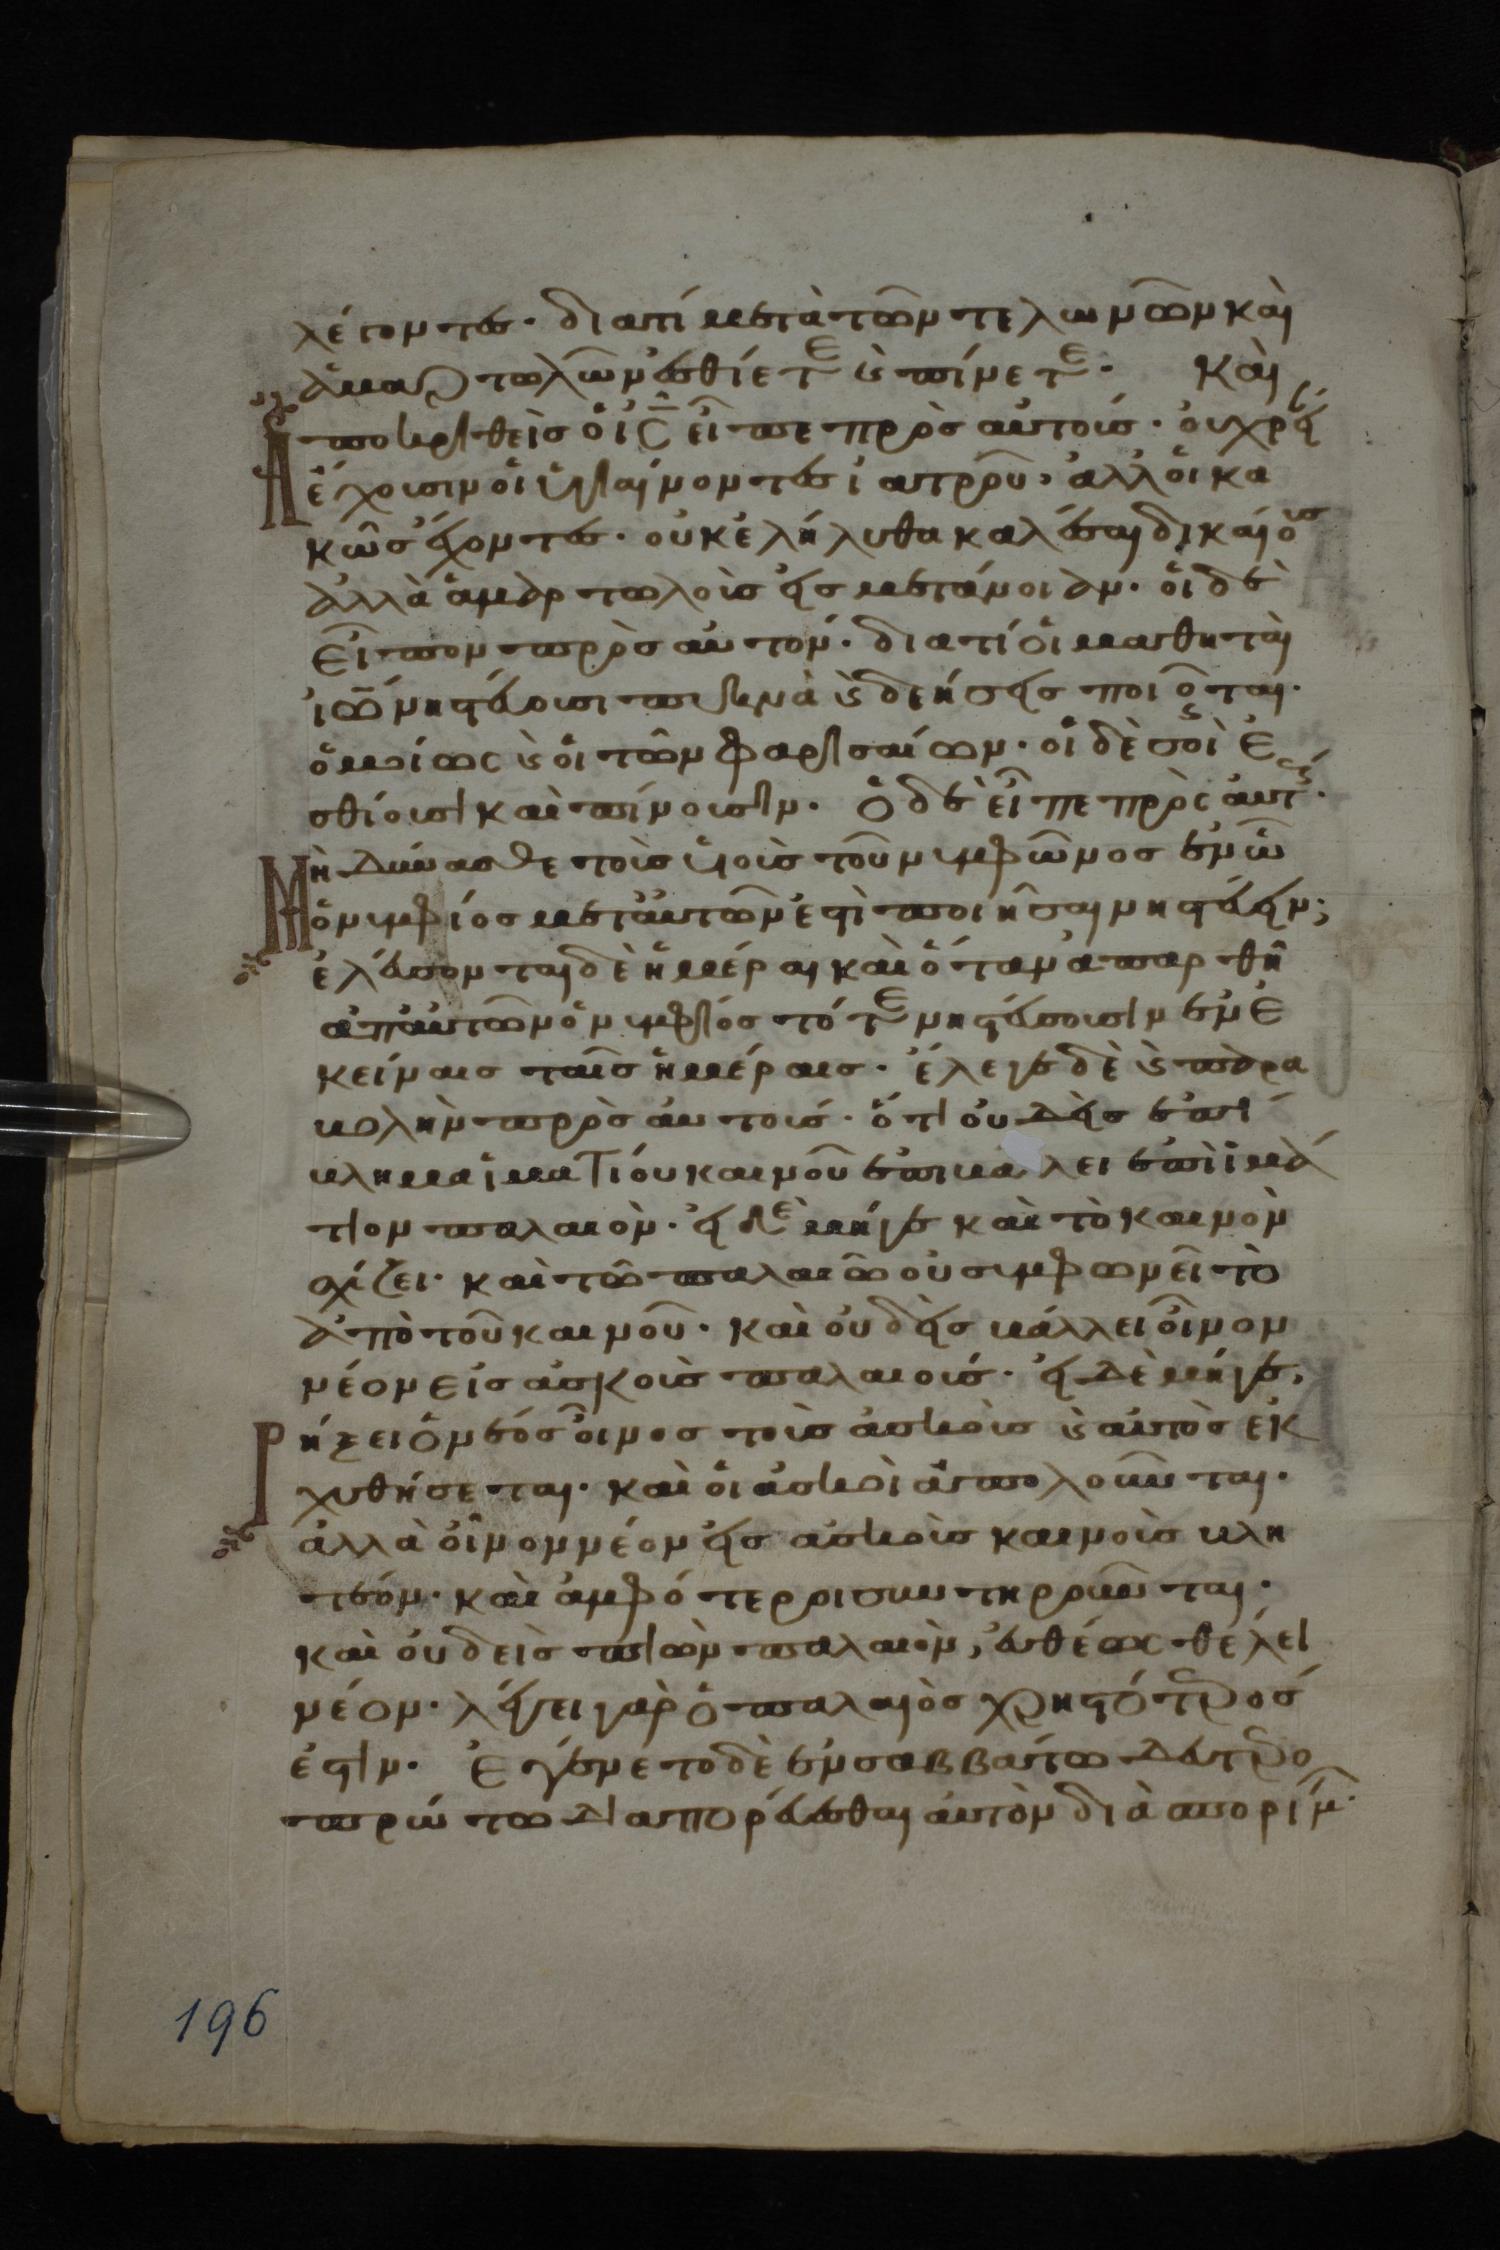 λέγοντες· διατί μετὰ τῶν τελωνῶν καὶ
ἁμαρτωλῶν ἐσθίετε καὶ πίνετε· Καὶ
ἀποκριθεὶς ὁ ις εἶπε πρὸς αὐτούς· οὐ χρεί
αν ἔχουσιν οἱ ὑγιαίνοντες ἰατροῦ, ἀλλ οἱ κα
κῶς ἔχοντες· οὐκ ἐλήλυθα καλέσαι δικαίους
ἀλλὰ ἁμαρτωλοὺς εἰς μετάνοιαν· οἱ δὲ
εἶπον πρὸς αὐτόν· διατί οἱ μαθηταὶ
ἰῶ νηστεύουσι πυκνὰ καὶ δεήσεις ποιοῦνται·
ὁμοίως καὶ οἱ τῶν φαρισαίων· οἱ δὲ σοὶ ἐ
σθίουσι καὶ πίνουσιν· Ὁ δὲ εἶπε πρὸς αὐτούς·
Μὴ δύνασθε τοὺς υἱοὺς τοῦ νυμφῶνος ἐν ᾧ
ὁ νυμφίος μετ αὐτῶν ἐστὶ ποιῆσαι νηστεύειν;
ἐλεύσονται δὲ ἡμέραι καὶ ὅταν ἀπαρθῆ
ἀπ αὐτῶν ὁ νυμφίος τότε νηστεύσουσιν ἐν ἐ
κείναις ταῖς ἡμέραις· ἔλεγε δὲ καὶ παρα
βολὴν πρὸς αὐτούς· ὅτι οὐδεὶς ἐπί
βλημα ἱματίου καινοῦ ἐπιβάλλει ἐπὶ ἱμά
τιον παλαιὸν· εἰ δὲ μήγε καὶ τὸ καινὸν
σχίζει· καὶ τῶ παλαιῶ οὐ συμφωνεῖ τὸ
ἀπὸ τοῦ καινοῦ· καὶ οὐδεὶς βάλλει οἶνον
νέον εἰς ἀσκοὺς παλαιούς· εἰ δὲ μήγε,
ῥήξει ὁ νέος οἶνος τοὺς ἀσκοὺς καὶ αὐτὸς ἐκ
χυθήσεται· καὶ οἱ ἀσκοὶ ἀπολοῦνται·
ἀλλὰ οἶνον νέον εἰς ἀσκοὺς καινοὺς βλη
τέον· καὶ ἀμφότεροι συντηροῦνται·
καὶ οὐδεὶς πιὼν παλαιὸν, εὐθέως θέλει
νέον· λέγει γὰρ ὁ παλαιὸς χρηστότερός
ἐστιν· Ἐγένετο δὲ ἐν σαββάτω δευτερο
πρώτω διαπορεύεσθαι αὐτὸν διὰ σπορίμων·
196